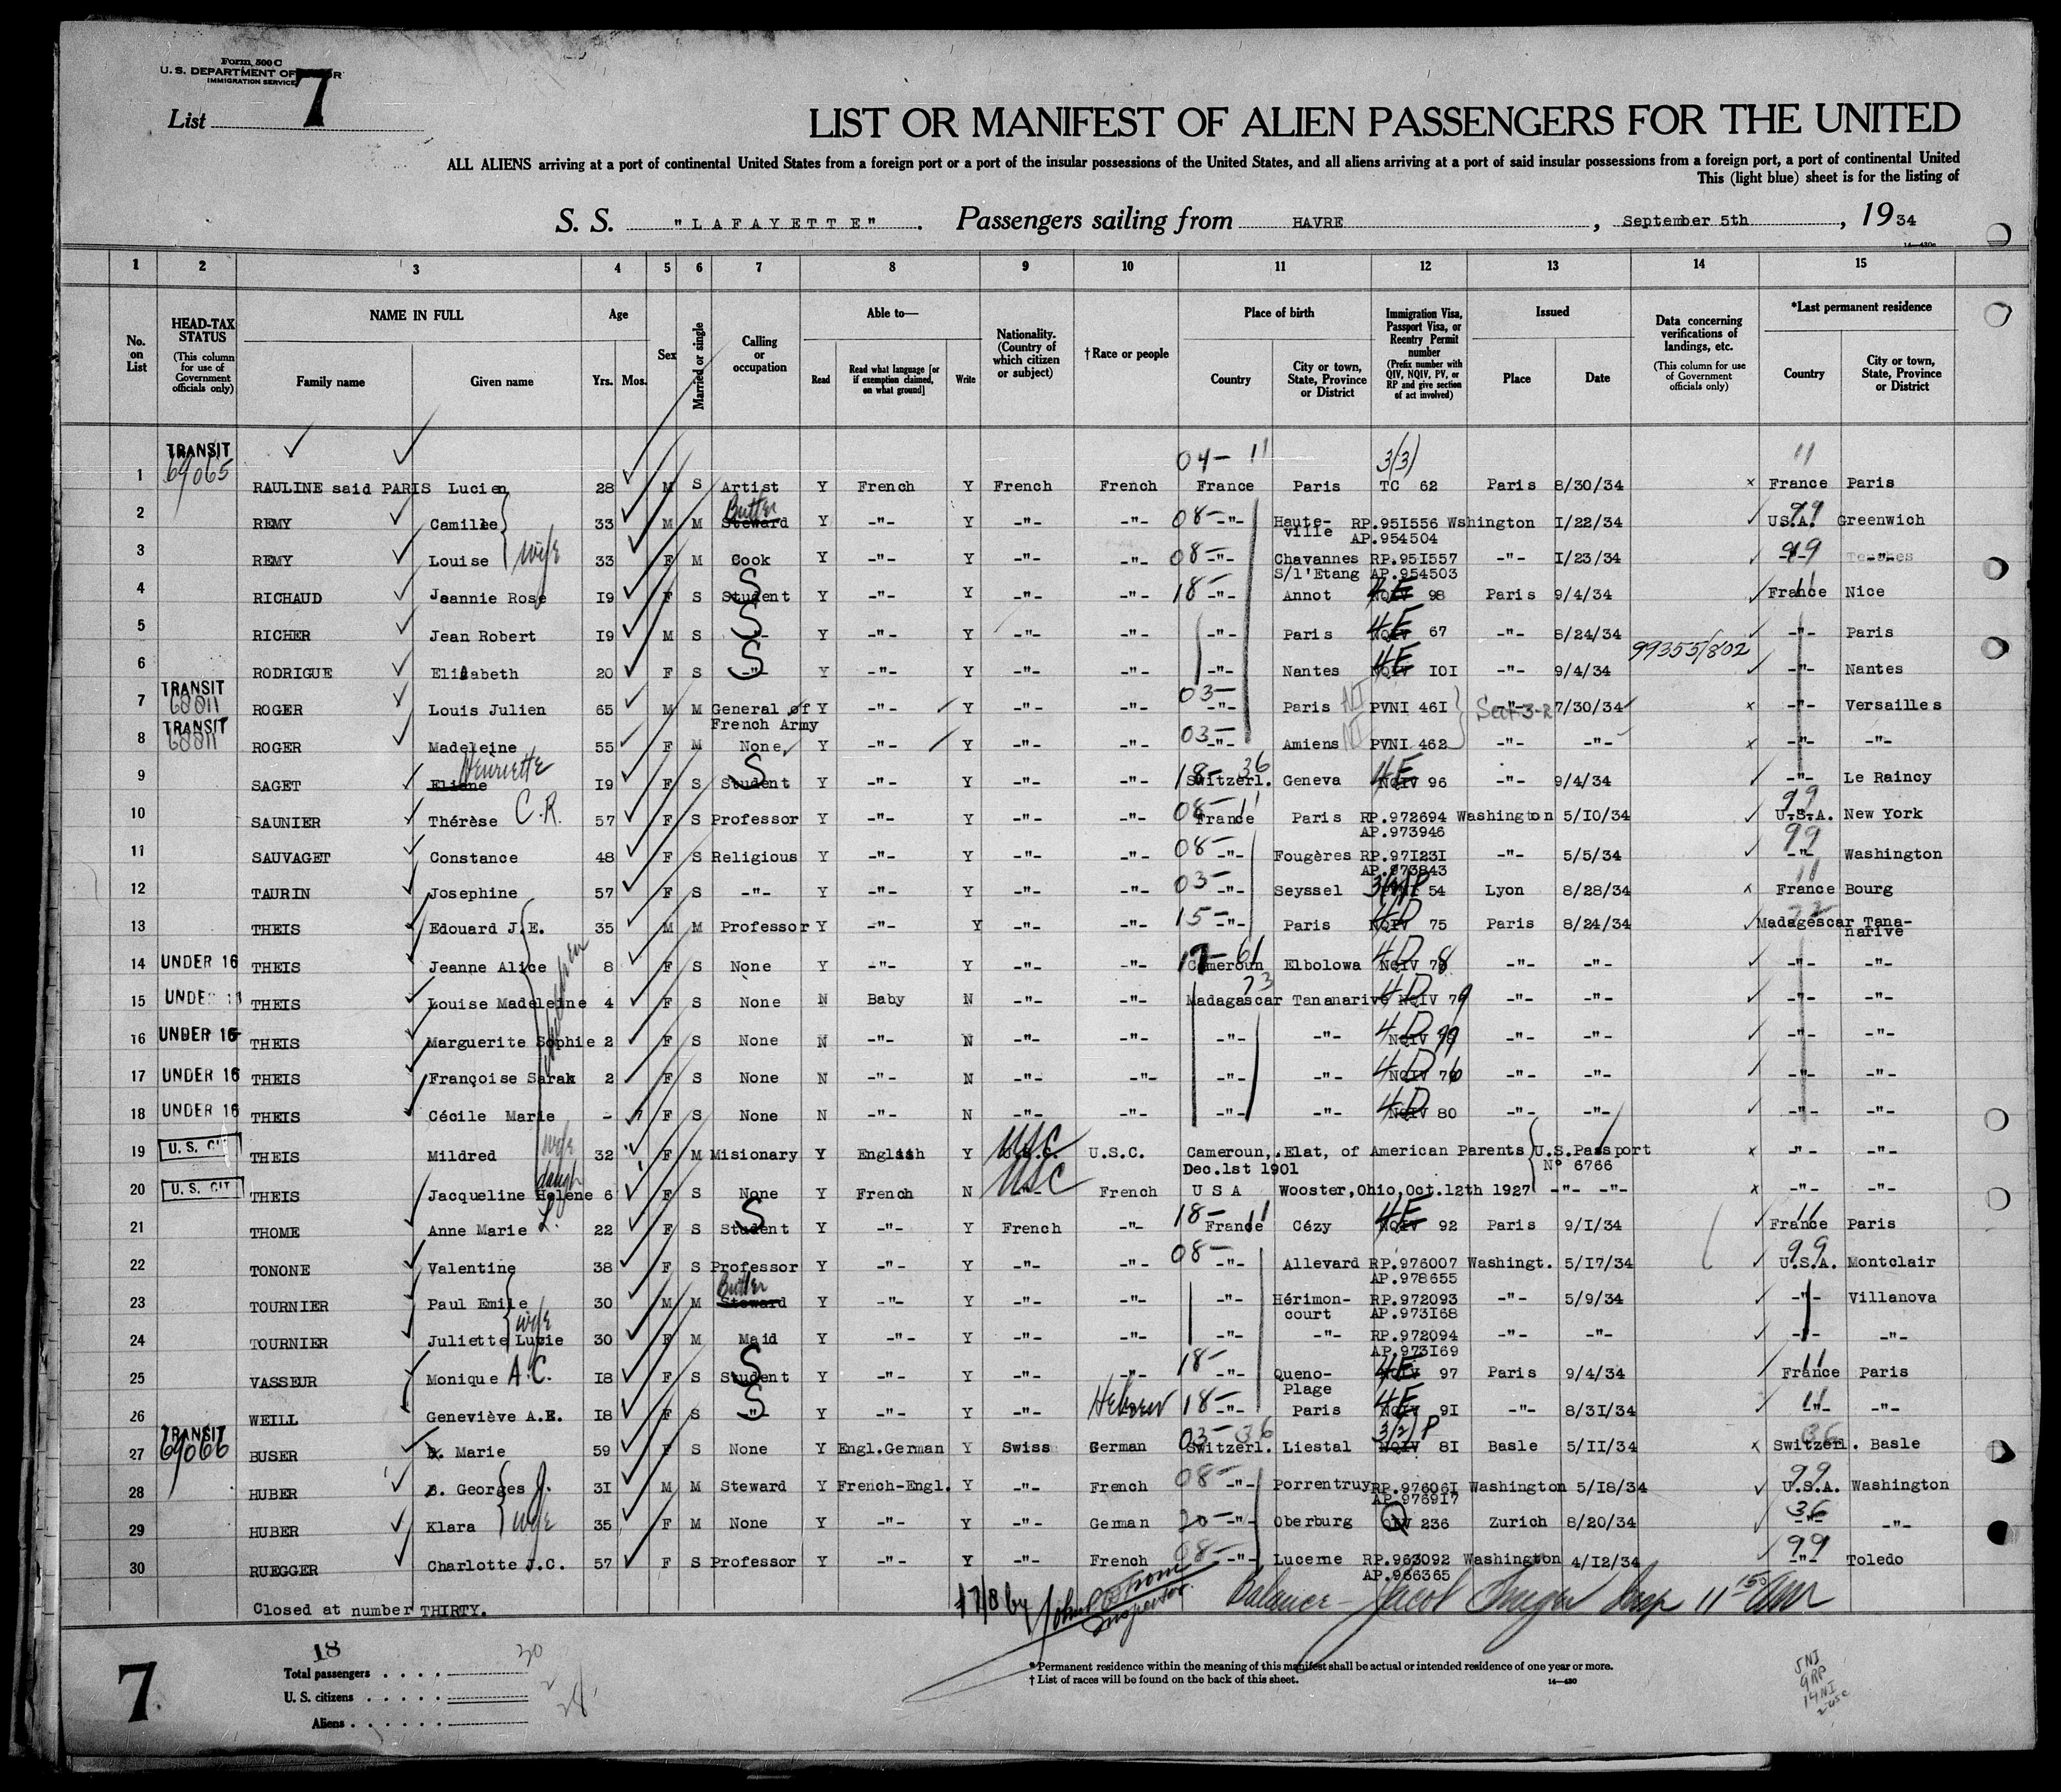 Form 500 C
U. S. DEPARTMENT OF
IMMIGRATION SERVICE
List 7
LIST OR MANIFEST OF ALIEN PASSENGERS FOR THE UNITED
ALL ALIENS arriving at a port of continental United States from a foreign port or a port of the insular possessions of the United States, and all aliens arriving at a port of said insular possessions from a foreign port, a port of continental United
This (light blue) sheet is for the listing of
S. S. "LAFAYETTE". Passengers sailing from HAVRE, September 5th, 1934
1 2 3 4 5 6 7 8 9 10 11 12 13 14 15
No. on List
HEAD-TAX STATUS (This column for use of Government officials only)
NAME IN FULL
Family name
Given name
Age
Yrs. Mos.
Sex
Married or single
Calling or occupation
Able to—
Read
Read what language [or if exemption claimed, on what ground]
Write
Nationality. (Country of which citizen or subject)
†Race or people
Place of birth
Country
City or town, State, Province or District
Immigration Visa, Passport Visa, or Reentry Permit number (Prefix number with QIV, NQIV, PV, or RP and give section of act involved)
Issued
Place
Date
Data concerning verifications of landings, etc. (This column for use of Government officials only)
*Last permanent residence
Country
City or town, State, Province or District
TRANSIT 04- 11 3(3) 11
1 69065 RAULINE said PARIS Lucien 28 M S Artist Y French Y French French France Paris TC 62 Paris 8/30/34 x France Paris
2 REMY Camille 33 M M Steward Butler Y -"- Y -"- -"- 08- -"- Haute-ville RP.951556 Wshington 1/22/34 USA. 99 Greenwich
AP.954504
3 REMY Louise wife 33 F M Cook Y -"- Y -"- -"- 08- -"- Chavannes RP.951557 -"- 1/23/34 99 -"-
S/l'Etang AP.954503
4 RICHAUD Jeannie Rose 19 F S Student S Y -"- Y -"- -"- 18- -"- Annot NQIV 4E 98 Paris 9/4/34 France 11 Nice
5 RICHER Jean Robert 19 M S -"- S Y -"- Y -"- -"- -"- Paris NQIV 4E 67 -"- 8/24/34 -"- Paris
6 RODRIGUE Elisabeth 20 F S -"- S Y -"- Y -"- -"- -"- Nantes NQIV 4E 101 -"- 9/4/34 99355/802 -"- Nantes
7 TRANSIT 68811 ROGER Louis Julien 65 M M General of French Army Y -"- Y -"- -"- 03- -"- Paris NI PVNI 461 -"- Sect-3-2 7/30/34 x -"- Versailles
8 TRANSIT 68811 ROGER Madeleine 55 F M None Y -"- Y -"- -"- 03- -"- Amiens NI PVNI 462 -"- -"- x -"- -"-
9 SAGET Eliane Henriette 19 F S Student S Y -"- Y -"- -"- 18- 36 Switzerl. Geneva NQIV 4E 96 -"- 9/4/34 -"- Le Raincy
10 SAUNIER Thérèse C.R. 57 F S Professor Y -"- Y -"- -"- 08- 11 France Paris RP.972694 Washington 5/10/34 99 U.S.A. New York
AP.973946
11 SAUVAGET Constance 48 F S Religious Y -"- Y -"- -"- 08- -"- Fougères RP.971231 -"- 5/5/34 99 -"- Washington
AP.973843
12 TAURIN Josephine 57 F S -"- Y -"- Y -"- -"- 03- -"- Seyssel 3(2)P 54 Lyon 8/28/34 x 11 France Bourg
13 THEIS Edouard J.E. 35 M M Professor Y -"- Y -"- -"- 15- -"- Paris NQIV 4D 75 Paris 8/24/34 Madagascar Tana-narive
14 UNDER 16 THEIS Jeanne Alice 8 F S None Y -"- Y -"- -"- 61 Cameroun Elbolowa NQIV 4D 78 -"- -"- -"- -"-
15 UNDER 16 THEIS Louise Madeleine 4 F S None N Baby N -"- -"- 73 Madagascar Tananarive NQIV 4D 79 -"- -"- -"- -"-
16 UNDER 16 THEIS Marguerite Sophie 2 F S None N -"- N -"- -"- -"- -"- NQIV 4D -"- -"- -"- -"-
17 UNDER 16 THEIS Françoise Sarah 2 F S None N -"- N -"- -"- -"- -"- NQIV 4D 76 -"- -"- -"- -"-
18 UNDER 16 THEIS Cécile Marie - 7 F S None N -"- N -"- -"- -"- -"- NQIV 4D 80 -"- -"- -"- -"-
children
19 U. S. CIT THEIS Mildred wife 32 F M Misionary Y English Y U.S.C. USC U.S.C. Cameroun, Elat, of American Parents U.S.Passport x -"- -"-
Dec.1st 1901 N° 6766
20 U. S. CIT THEIS Jacqueline Helene daugh 6 F S None Y French N -"- USC French U S A Wooster,Ohio,Oct.12th 1927 -"- -"- x -"- -"-
21 THOME Anne Marie L. 22 F S Student S Y -"- Y French -"- 18- 11 France Cézy NQIV 4E 92 Paris 9/1/34 11 France Paris
22 TONONE Valentine 38 F S Professor Y -"- Y -"- -"- 08- -"- Allevard RP.976007 Washingt. 5/17/34 99 U.S.A. Montclair
AP.978655
23 TOURNIER Paul Emile 30 M M Steward Butler Y -"- Y -"- -"- -"- Hérimon-court RP.972093 -"- 5/9/34 -"- Villanova
AP.973168
24 TOURNIER Juliette Lucie wife 30 F M Maid Y -"- Y -"- -"- -"- -"- RP.972094 -"- -"- -"- -"-
AP.973169
25 VASSEUR Monique A.C. 18 F S Student S Y -"- Y -"- -"- 18- -"- Queno-Plage NQIV 4E 97 Paris 9/4/34 11 France Paris
26 WEILL Geneviève A.E. 18 F S -"- S Y -"- Y -"- Hebrew 18- -"- Paris NQIV 4E 91 -"- 8/31/34 11 -"- -"-
27 TRANSIT 69066 BUSER Marie 59 F S None Y Engl.German Y Swiss German 03- 36 Switzerl. Liestal NQIV 3(2)P 81 Basle 5/11/34 x 36 Switzerl. Basle
28 HUBER Georges J. 31 M M Steward Y French-Engl. Y -"- French 08- -"- Porrentruy RP.976061 Washington 5/18/34 99 U.S.A. Washington
AP.976917
29 HUBER Klara wife 35 F M None Y -"- Y -"- German 20- -"- Oberburg QIV 236 Zurich 8/20/34 36 -"- -"-
30 RUEGGER Charlotte J.C. 57 F S Professor Y -"- Y -"- French 08- -"- Lucerne RP.963092 Washington 4/12/34 99 -"- Toledo
AP.966365
Closed at number THIRTY.
Inspector.
Balance - Jacob Insp 11 15 am
18
Total passengers . . . . 30
U. S. citizens . . . . . 2
Aliens . . . . . . 28
7
*Permanent residence within the meaning of this manifest shall be actual or intended residence of one year or more.
† List of races will be found on the back of this sheet. 14—430
5 NI
9 RP
14 NI
2 USC